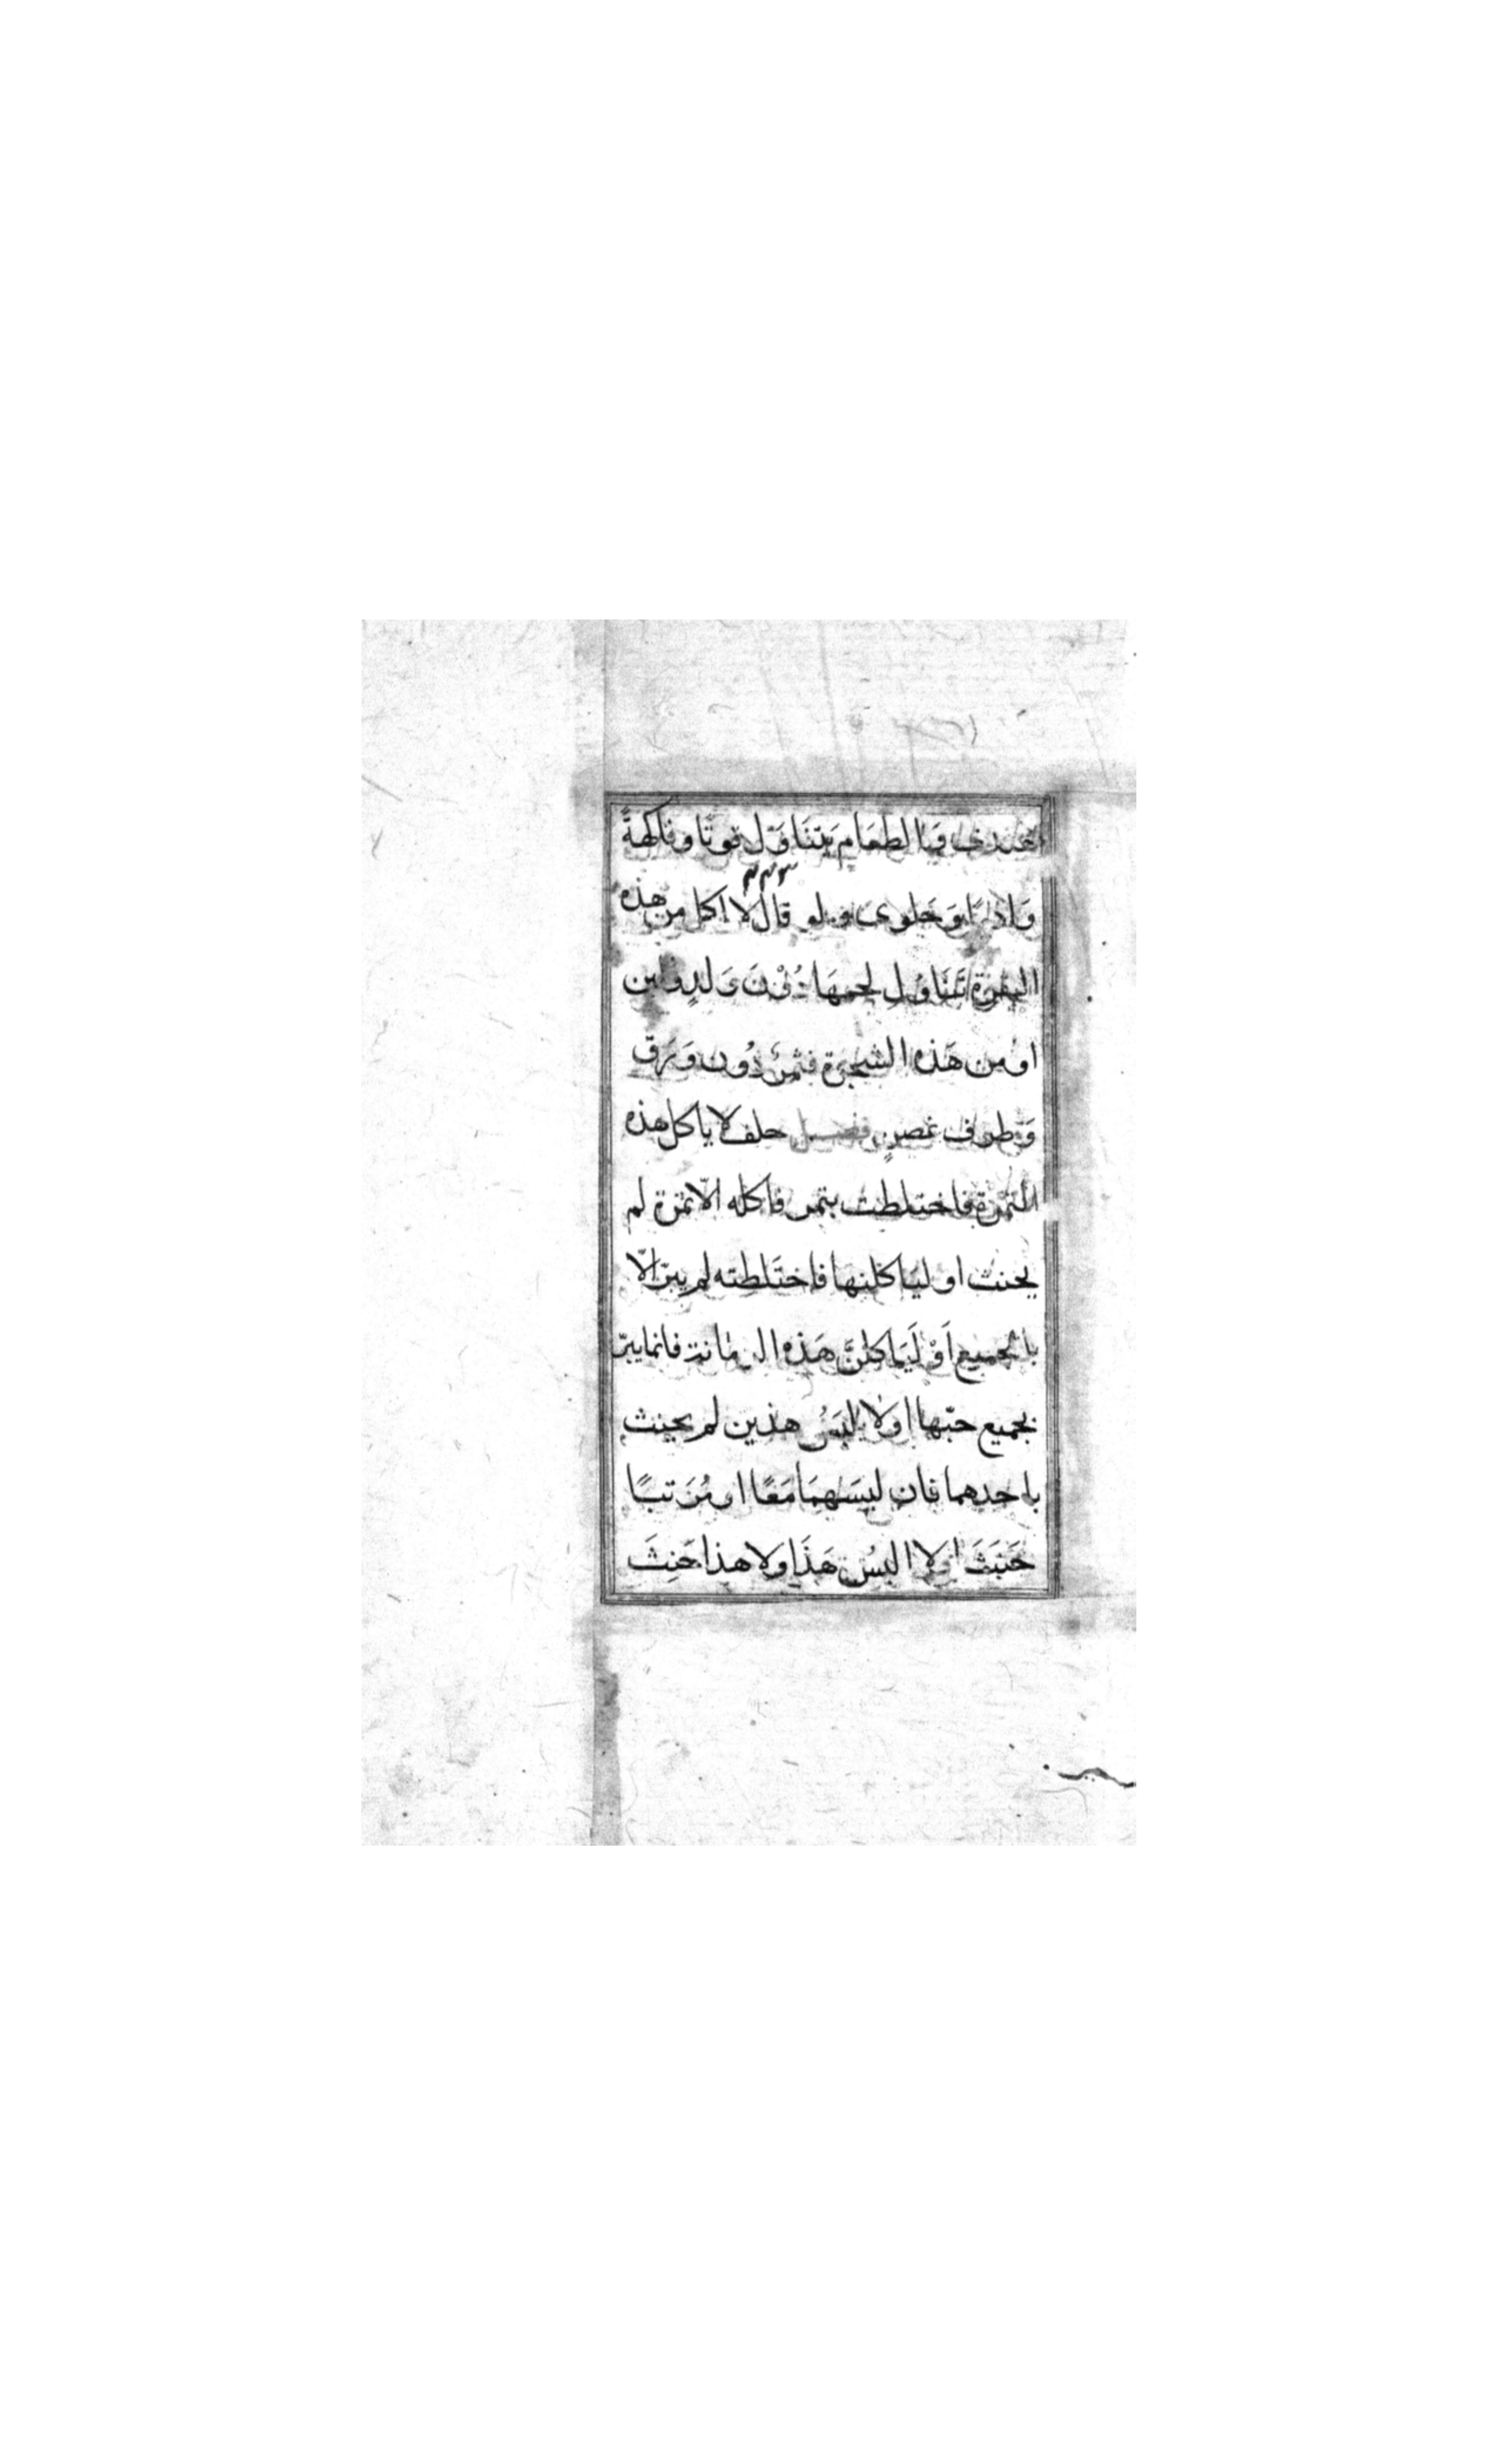 الهندي و الطعام يتناول قوتا وفاكهةً
وادما وحلوى ولو قال لا اكل من هذه
البقرة تناول لحمها دون ولدٍ ولبن
او من هذه الشجرة فثمر دون وَرق
وطرف غصنٍ فصل حلف لا ياكل هذه
التمرة فاختلطت بتمر فاكله الّا تمرة لم
يحنث او لياكلنها فاختلطته لم يبرّ الّا
بالجميع اَوْ لَيَاكلنَّ هَذه الرمانة فانما يبرّ
بجميع حبّها او لا يلبَسُ هذين لم يحنث
باحدهما فان لبسَهمَا مَعًا او مُرَتبًا
حَنَثَ او لا البسُ هَذَا ولا هذا حَنِثَ